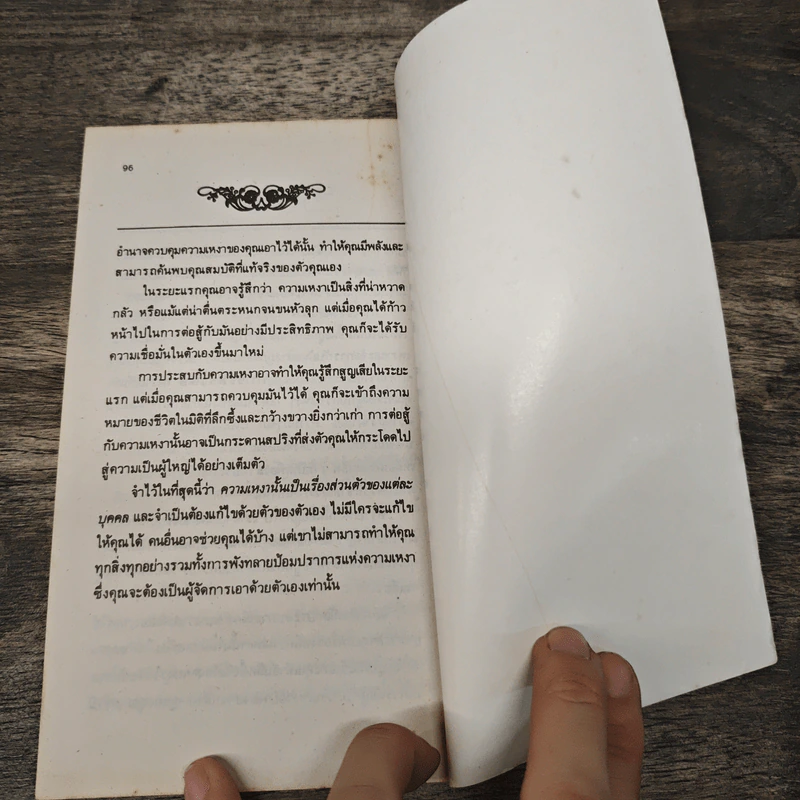 96
อำนาจควบคุมความเหงาของคุณเอาไว้ได้นั้น ทำให้คุณมีพลังและ
สามารถค้นพบคุณสมบัติที่แท้จริงของตัวคุณเอง
ในระยะแรกคุณอาจรู้สึกว่า ความเหงาเป็นสิ่งที่น่าหวาด
กลัว หรือแม้แต่น่าตื่นตระหนกจนขนหัวลุก แต่เมื่อคุณได้ก้าว
หน้าไปในการต่อสู้กับมันอย่างมีประสิทธิภาพ คุณก็จะได้รับ
ความเชื่อมั่นในตัวเองขึ้นมาใหม่
การประสบกับความเหงาอาจทำให้คุณรู้สึกสูญเสียในระยะ
แรก แต่เมื่อคุณสามารถควบคุมมันไว้ได้ คุณก็จะเข้าถึงความ
หมายของชีวิตในมิติที่ลึกซึ้งและกว้างขวางยิ่งกว่าเก่า การต่อสู้
กับความเหงานั้นอาจเป็นกระดานสปริงที่ส่งตัวคุณให้กระโดดไป
สู่ความเป็นผู้ใหญ่ได้อย่างเต็มตัว
จำไว้ในที่สุดนี้ว่า ความเหงานั้นเป็นเรื่องส่วนตัวของแต่ละ
บุคคล และจำเป็นต้องแก้ไขด้วยตัวของตัวเอง ไม่มีใครจะแก้ไข
ให้คุณได้ คนอื่นอาจช่วยคุณได้บ้าง แต่เขาไม่สามารถทำให้คุณ
ทุกสิ่งทุกอย่างรวมทั้งการพังทลายป้อมปราการแห่งความเหงา
ซึ่งคุณจะต้องเป็นผู้จัดการเอาด้วยตัวเองเท่านั้น